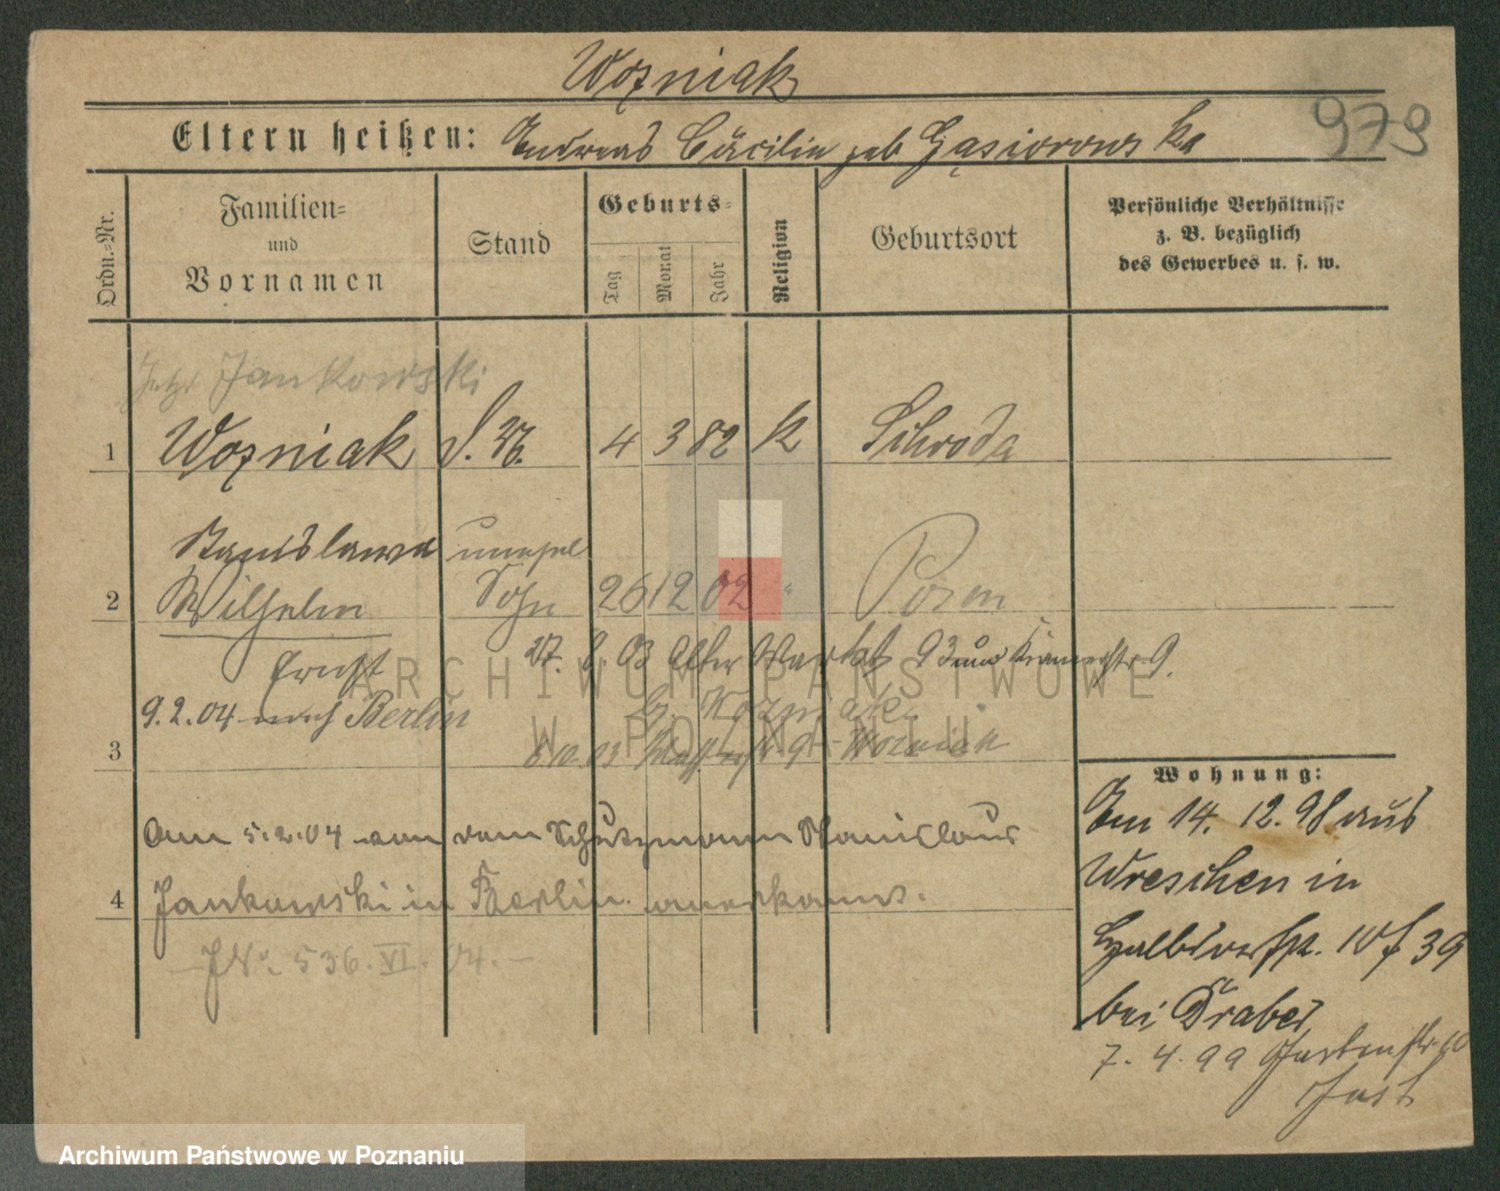 Wozniak
979
Eltern heißen: Andreas Cäcilie geb Gąsiorowska
Ordn.-Nr.
Familien-
und
Vornamen
Stand
Geburts-
Tag
Monat
Jahr
Religion
Geburtsort
Persönliche Verhältnisse
z. B. bezüglich
des Gewerbes u. s. w.
jetzt Jankowski
1 Wozniak 4 3 82 k Schroda
Stanislawa unehel
2 Wilhelm Sohn 26 12 02 " Posen
Ernst
27. 03 Alter Markt 93
9.2.04 nach Berlin
Woźniak
3 03 9 Wozniak
Am 5.2.04 von dem Schutzmann Stanislaus
4 Jankowski in Berlin anerkannt.
J.Nr. 536. VI. 04.
Wohnung:
Am 14. 12. 98 aus
Wreschen in
Halbdorfstr. 39
bei Draber
7. 4. 99 Gartenstr. 10
ARCHIWUM PAŃSTWOWE
W POZNANIU
Archiwum Państwowe w Poznaniu